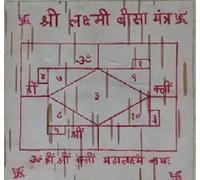 卐 श्री लक्ष्मी बीसा यंत्र 卐
ॐ
७
ह्रीं ३ क्लीं
८ १०
श्रीं
ॐ ह्रीं श्रीं क्लीं महालक्ष्मै नमः
卐 卐